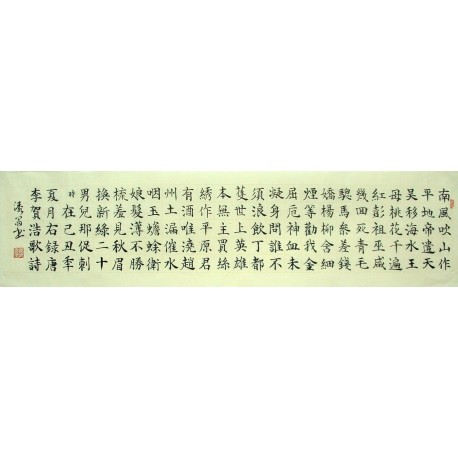 南風吹山作
平地帝遣天
吴移海水王
母桃花千遍
紅彭祖巫咸
幾回死青毛
驄馬參差錢
嬌楊柳含細
煙箏勸我金
屈卮神血未
凝身問誰不
須浪飲丁都
護世上英雄
本無主買絲
繡作平原君
有酒唯澆趙
州土漏催水
咽玉蟾蜍衛
娘髮薄不勝
梳羞見秋眉
換新綠二十
男兒那促刺
时在己丑年
夏月右録唐
李賀浩歌詩